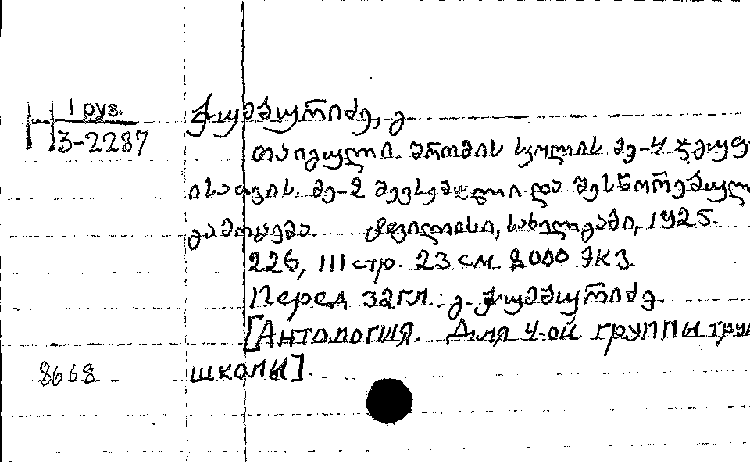 Груз.
3-2287
ჭუმბურიძე, გ
თაიგული. შრომის სკოლის მე-4 ჯგუფ
ისათვის. მე-2 შევსებული და შესწორებულ
გამოცემა. ტფილისი, სახელგამი, 1925.
226, III стр. 23 см. 2000 экз.
Перед загл. გ. ჭუმბურიძე.
[Антология. Для 4-ой группы труд
8668 школы].